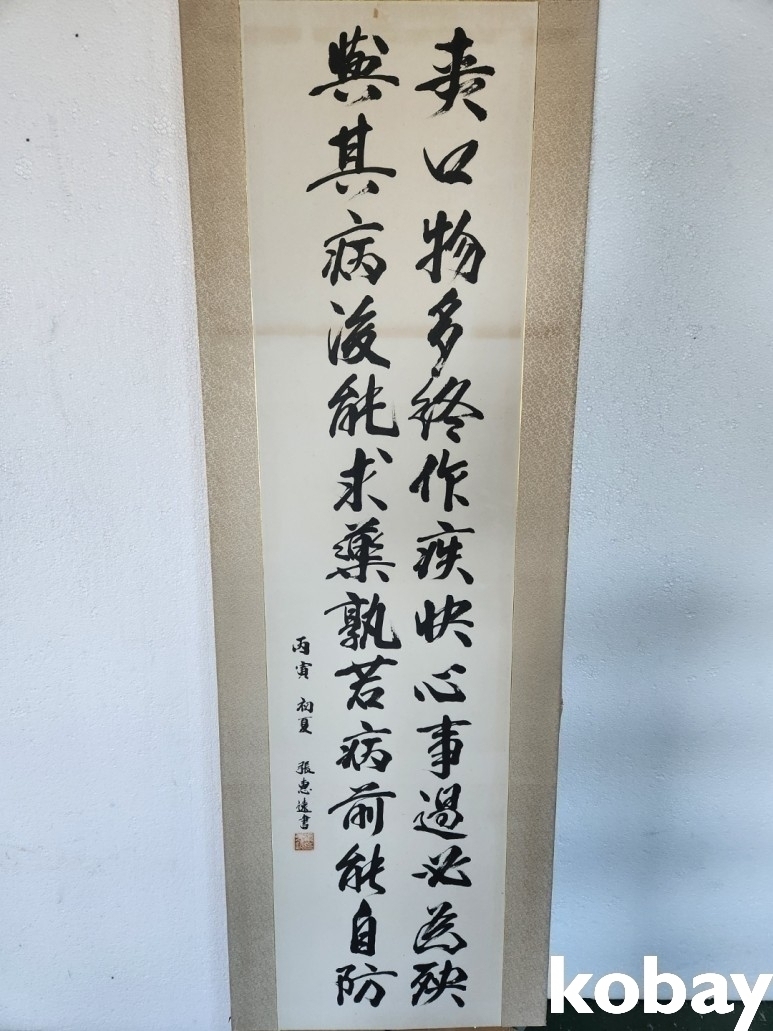 爽口物多終作疾快心事過必為殃
與其病後能求藥孰若病前能自防
丙寅 初夏 張惠遠書
kobay